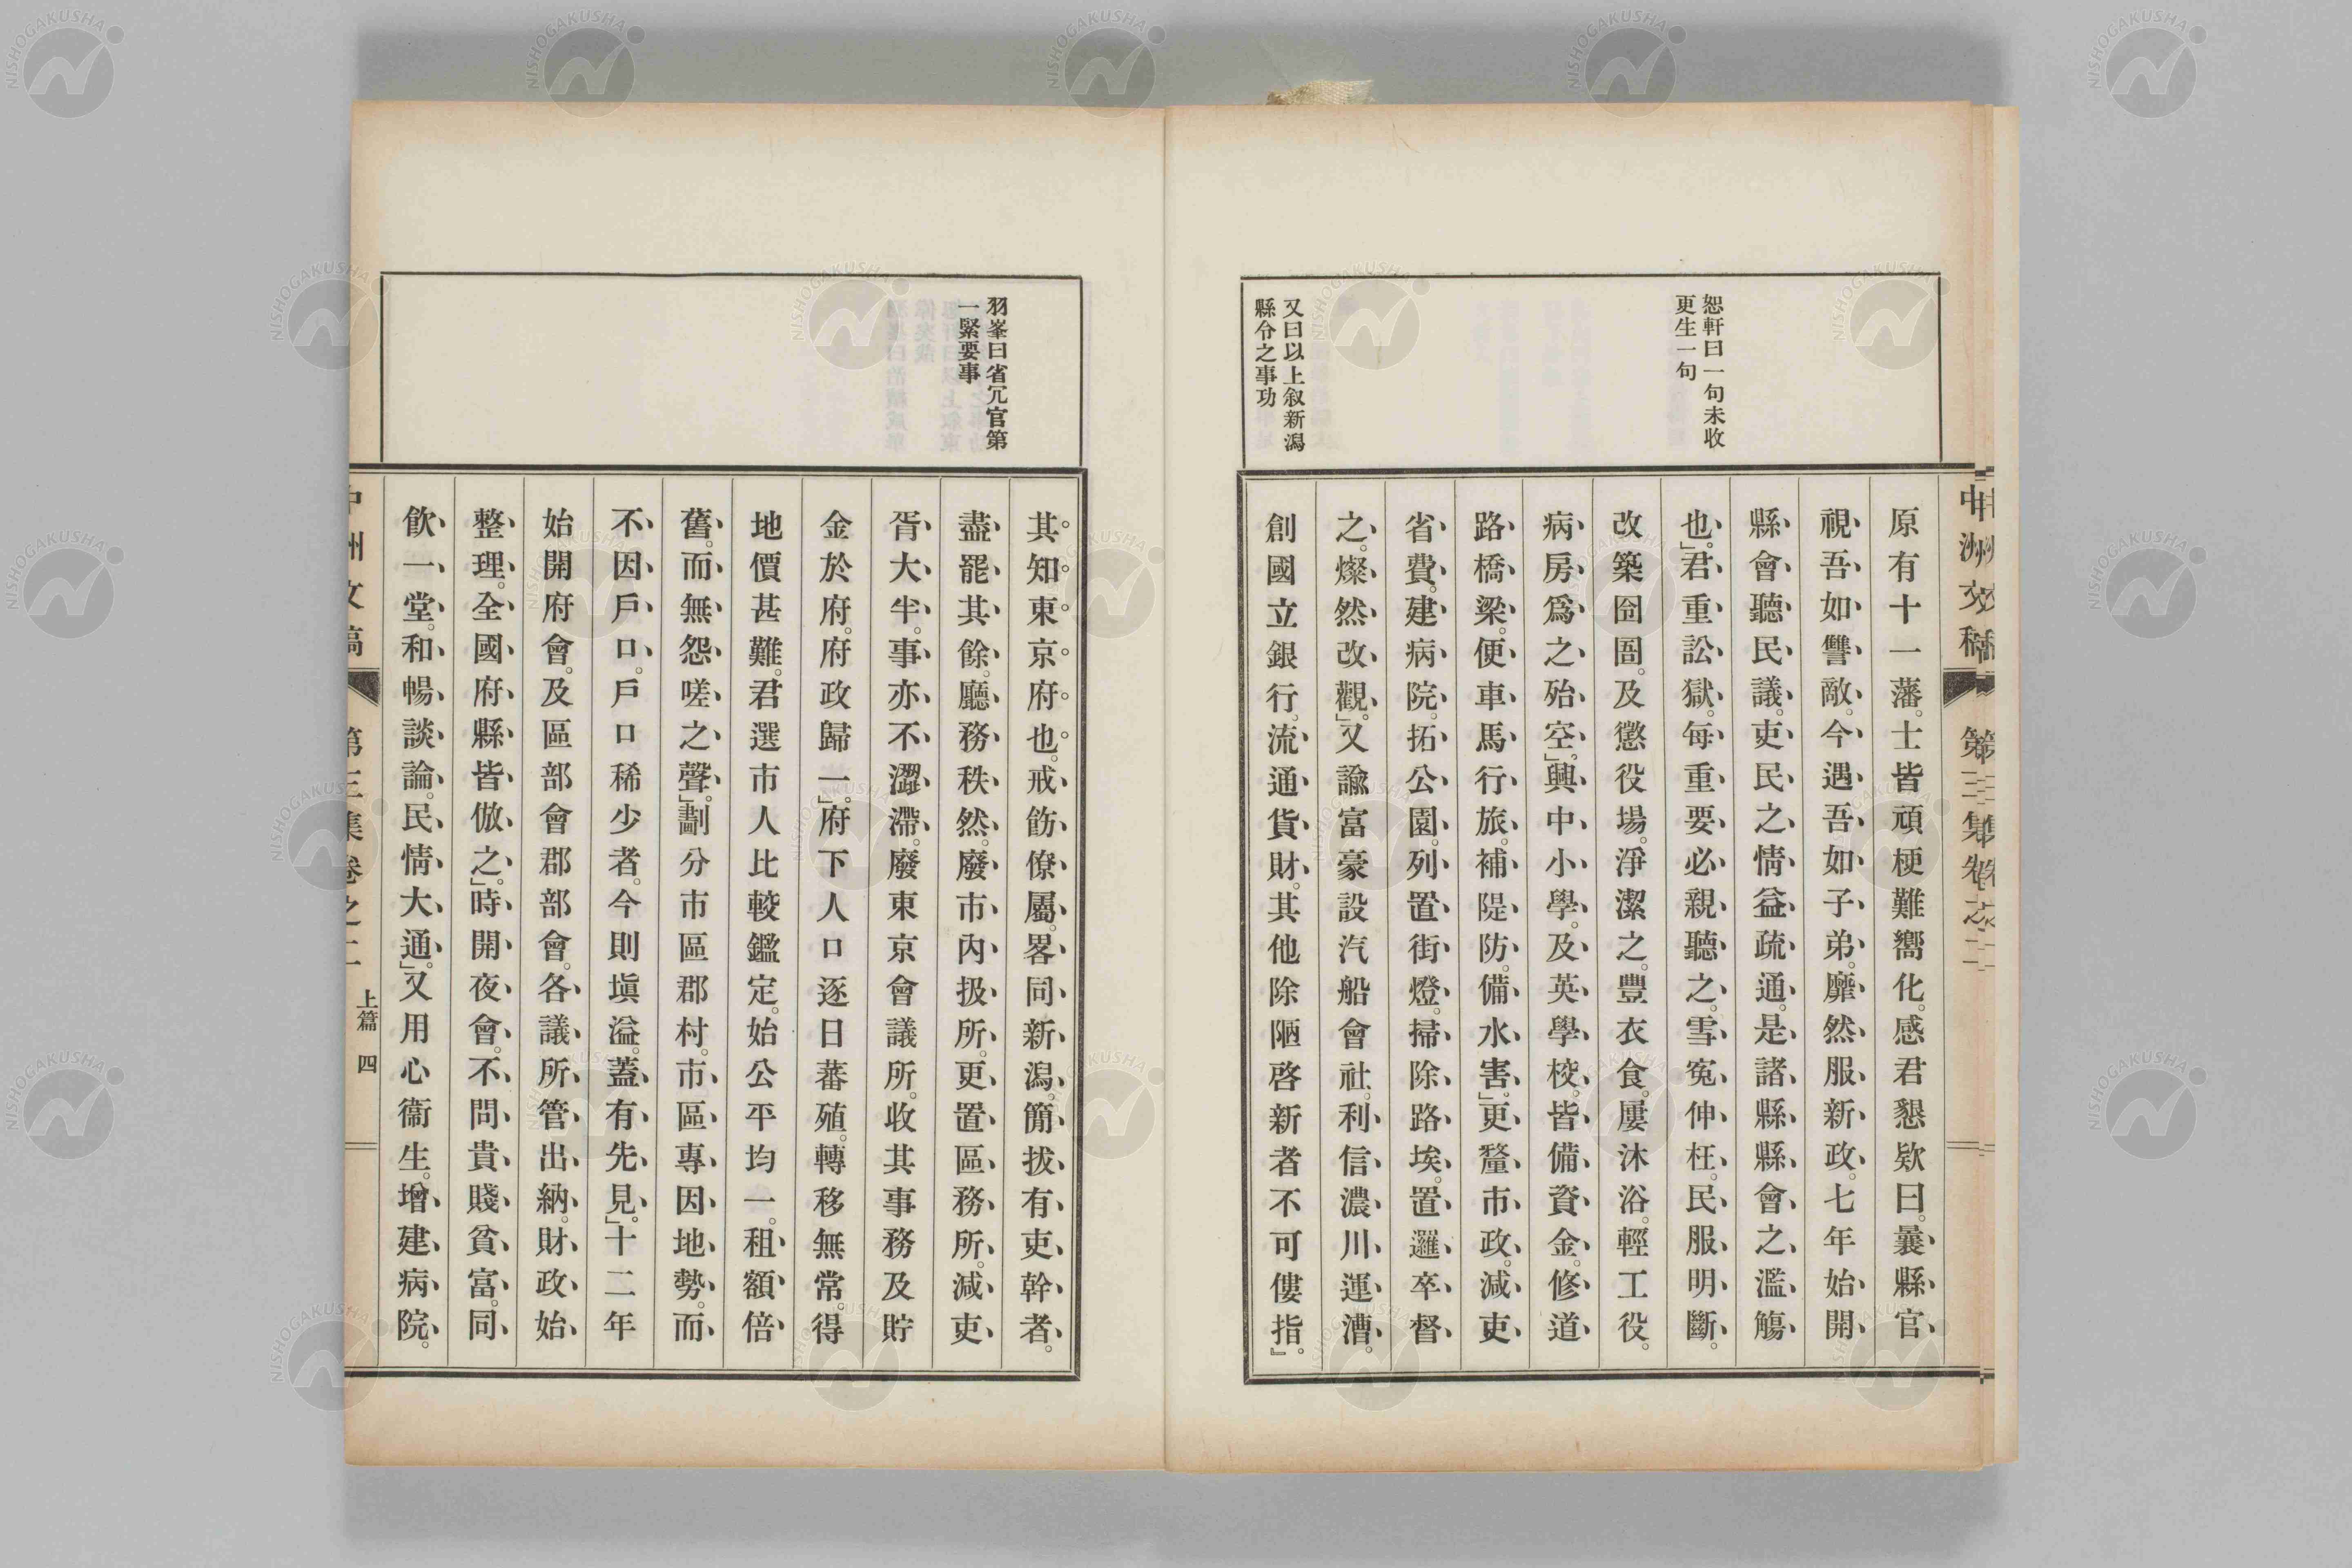 恕軒曰一句未收
更生一句
又曰以上叙新潟
縣令之事功
中洲文稿 第三集卷之二
原有十一藩。士皆頑梗難嚮化。感君懇欵曰。曩縣官
視吾如讐敵。今遇吾如子弟。靡然服新政。七年始開
縣會聽民議。吏民之情益疏通。是諸縣縣會之濫觴
也。」君重訟獄。每重要必親聽之。雪寃伸枉。民服明斷。
改築囹圄。及懲役場。淨潔之。豐衣食。屢沐浴。輕工役。
病房爲之殆空。」興中小學。及英學校。皆備資金。修道
路橋梁。便車馬行旅。補隄防。備水害。」更釐市政。減吏
省費。建病院。拓公園。列置街燈。掃除路埃。置邏卒督
之。燦然改觀。」又諭富豪設汽船會社。利信濃川運漕。
創國立銀行。流通貨財。其他除陋啓新者不可僂指。」
羽峯曰省冗官第
一緊要事
其知東京府也。戒飭僚屬。畧同新潟。簡拔有吏幹者。
盡罷其餘。廳務秩然。廢市內扱所。更置區務所。減吏
胥大半。事亦不澀滯。廢東京會議所。收其事務及貯
金於府。府政歸一。」府下人口逐日蕃殖。轉移無常。得
地價甚難。君選市人比較鑑定。始公平均一。租額倍
舊。而無怨嗟之聲。」劃分市區郡村。市區專因地勢。而
不因戶口。戶口稀少者。今則塡溢。蓋有先見。」十二年
始開府會。及區部會郡部會。各議所管出納。財政始
整理。全國府縣皆倣之。」時開夜會。不問貴賤貧富。同
飮一堂。和暢談論。民情大通。」又用心衞生。增建病院。
中洲文稿 第三集卷之二 上篇 四